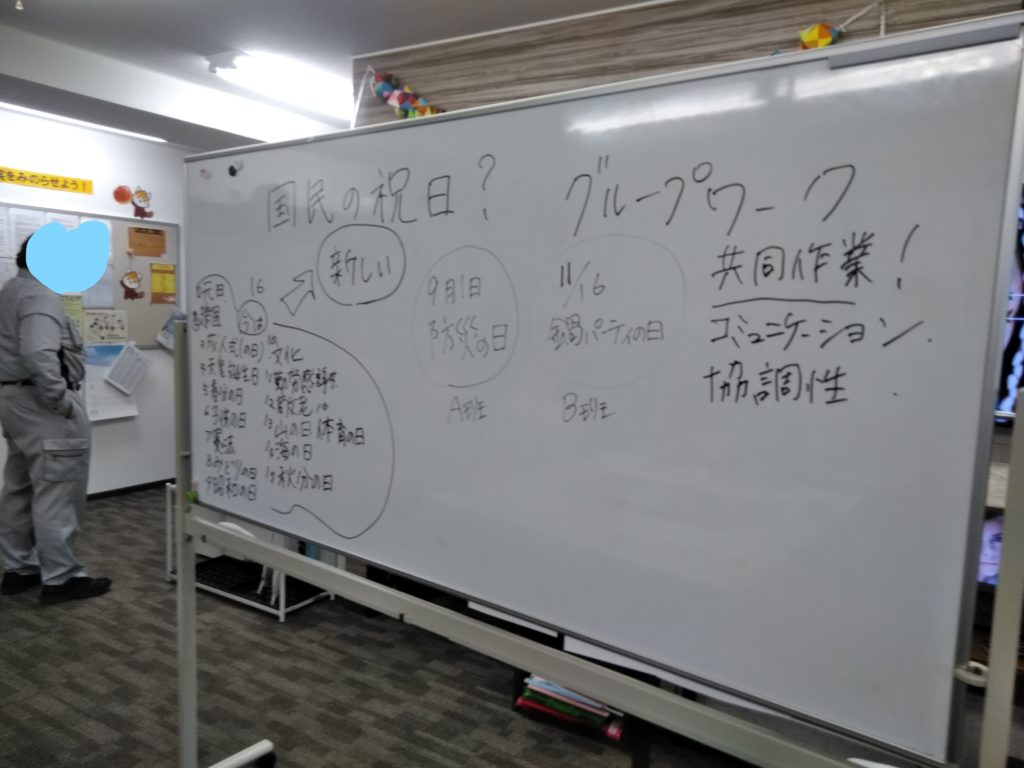 実をみのらせよう!
国民の祝日?
グループワーク
新しい
16
元日
9月1日
防災の日
A班
11/16
鍋パーティの日
B班
共同作業!
コミュニケーション
協調性
文化
4 天皇誕生日
5 春分の日
6 子供の日
7 憲法
8 みどりの日
9 昭和の日
11 勤労感謝
13 山の日
体育の日
海の日
秋分の日